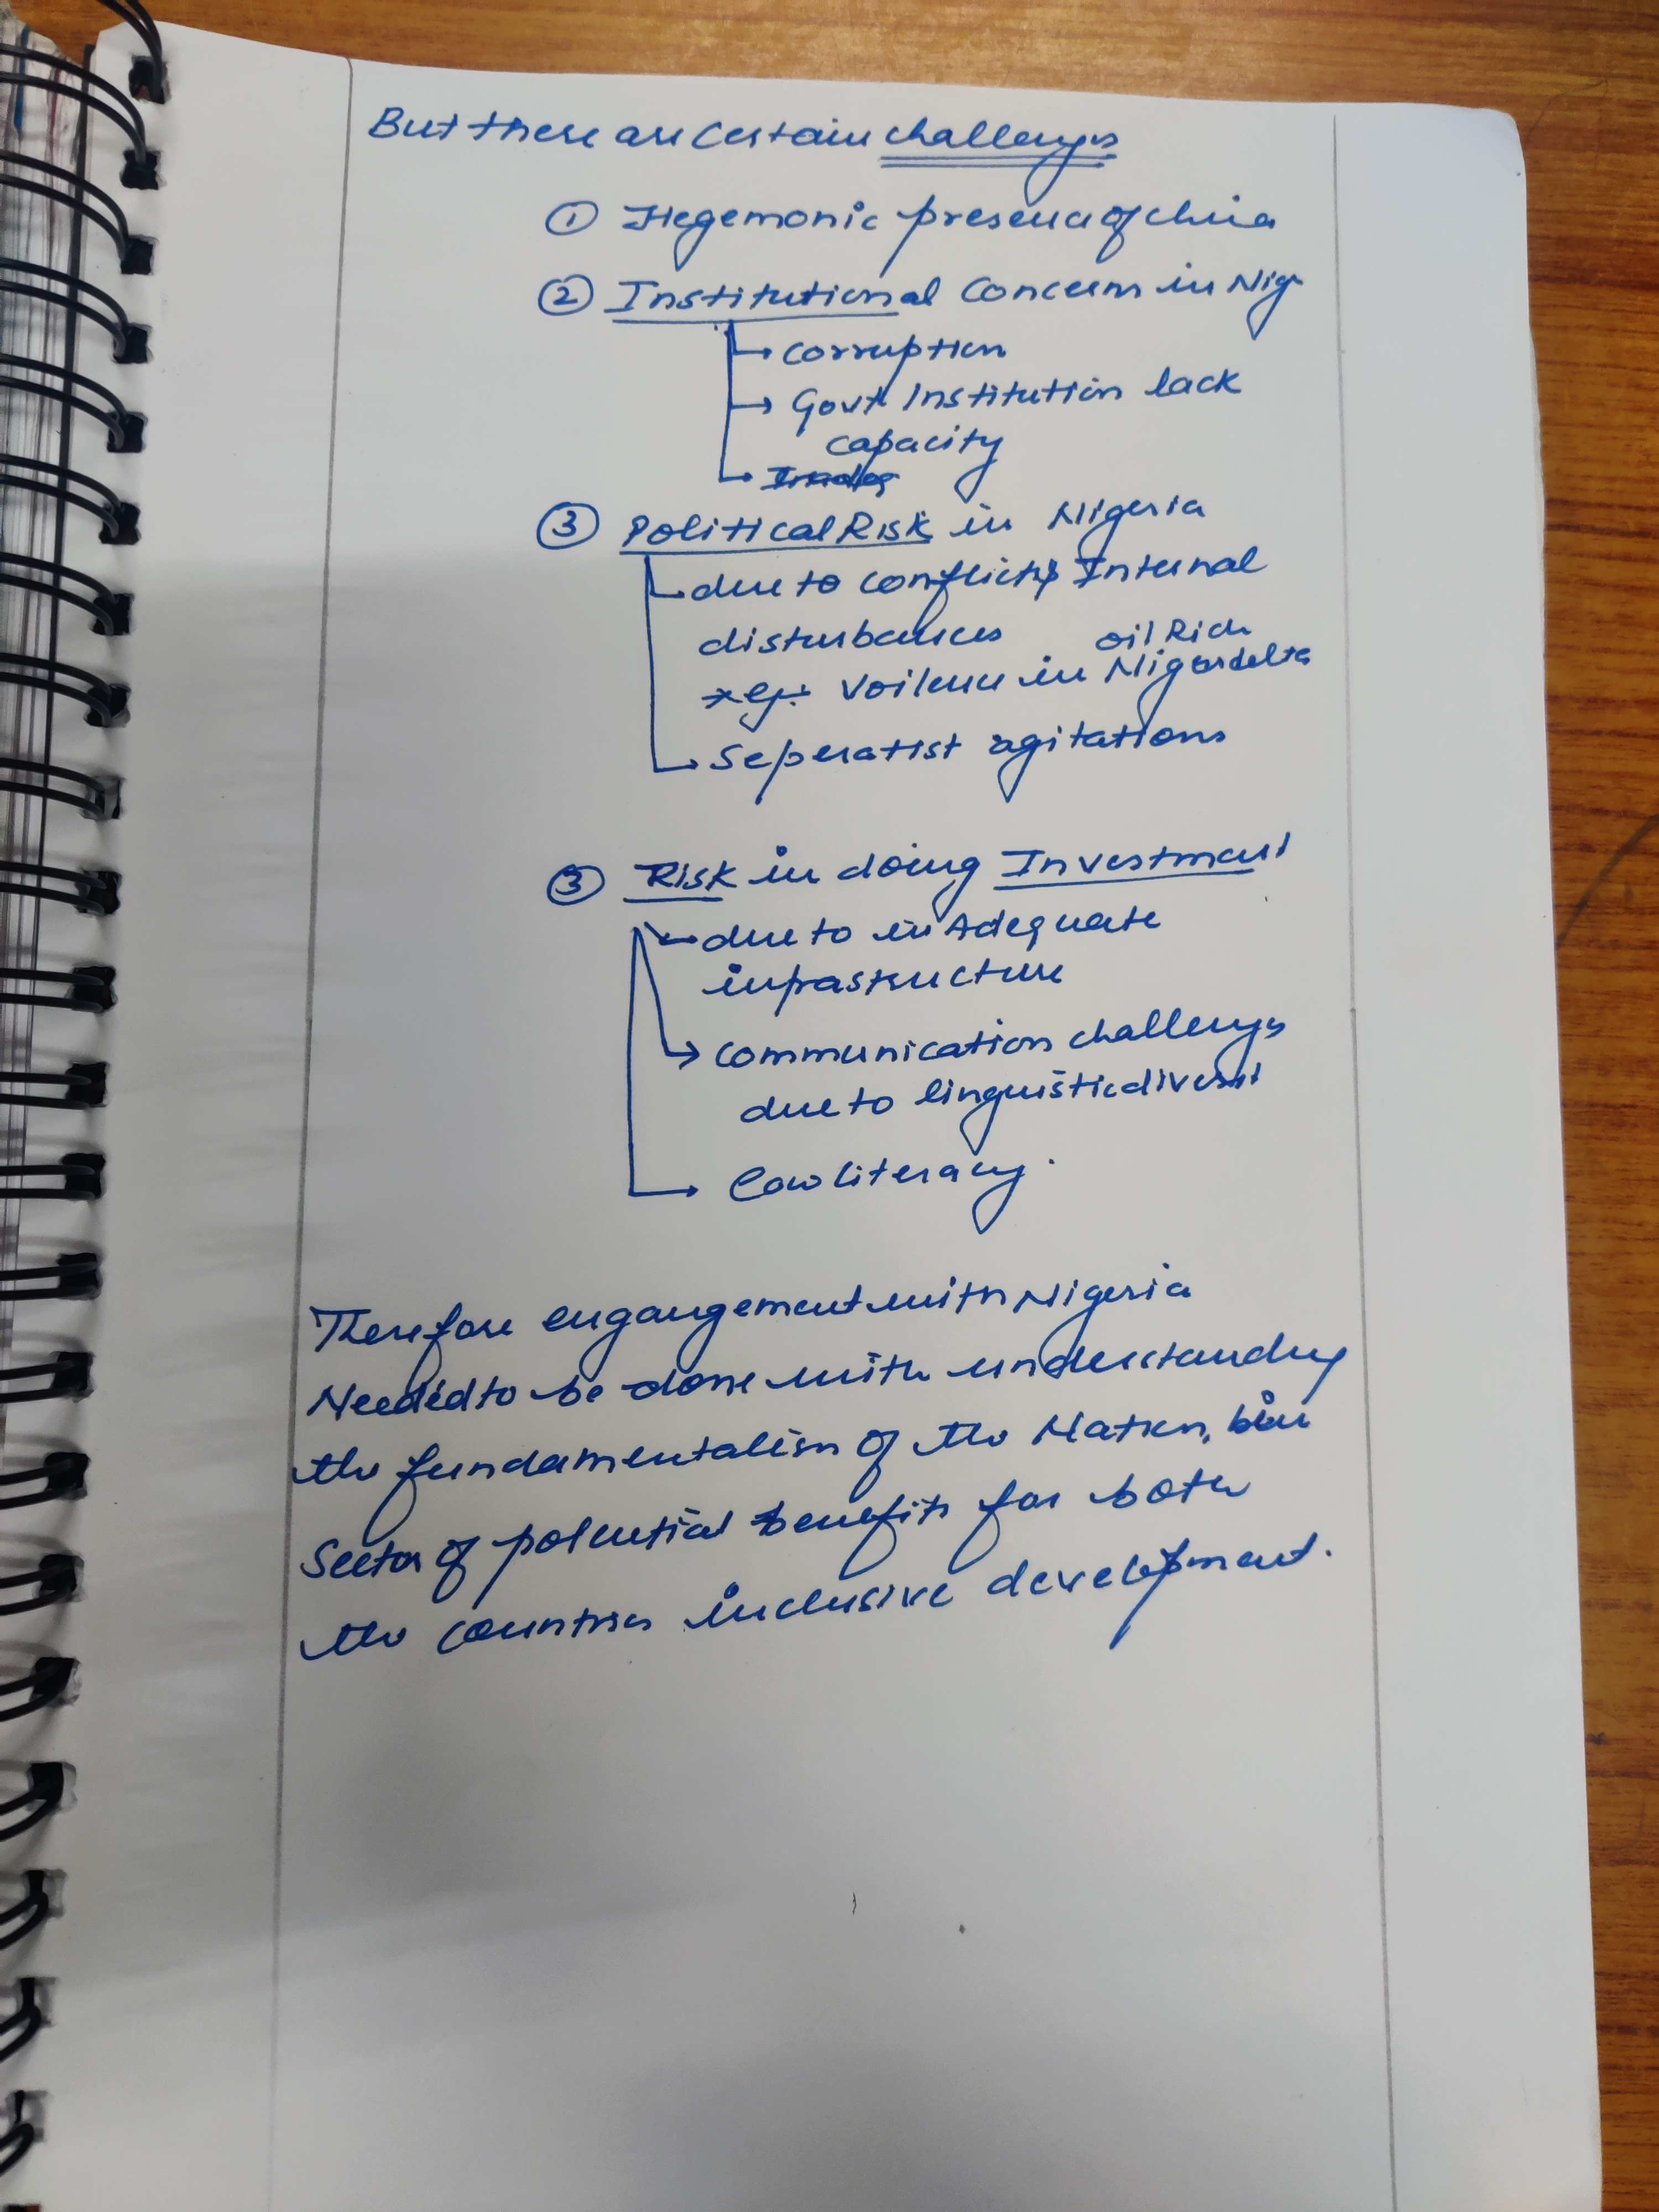 But there are certain challenges
① Hegemonic presence of china
② Institutional concerns in Nig.
→ corruption
→ Govt Institution lack
capacity
③ Political Risk in Nigeria
due to conflicts Internal
disturbances
oil Rich
*eg:- Voilence in Nigerdelta
→ Seperatist agitations
③ Risk in doing Investment
→ due to inAdequate
infrastructure
→ communication challenges
due to linguistic
→ low literacy.
Therefore engangement with Nigeria
Needed to be done with understanding
the fundamentalism of the Nation,
Sector of potential benefits for both
the countries inclusive development.